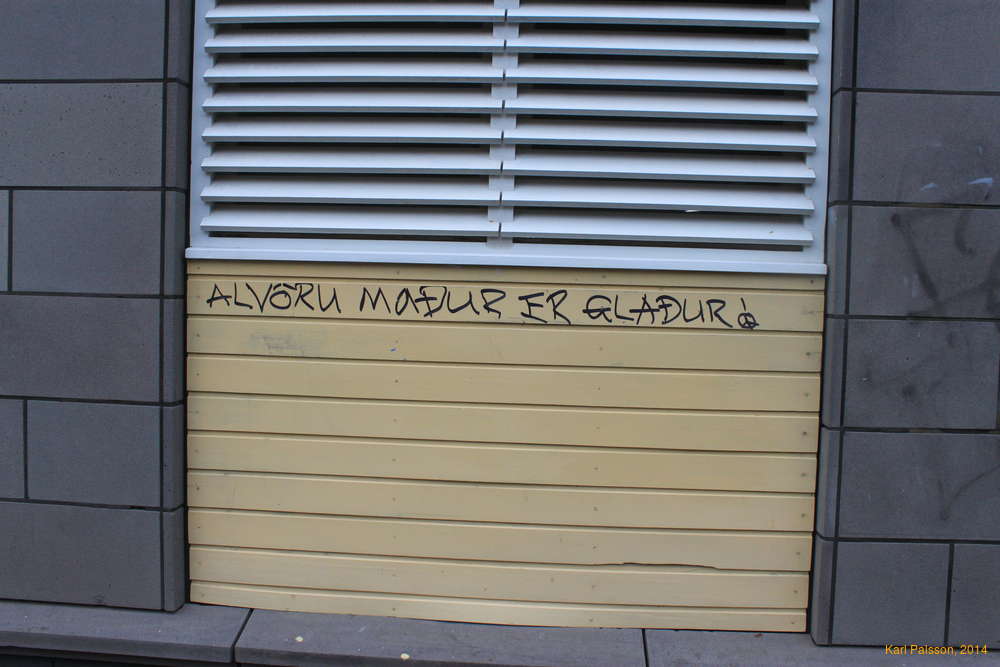 ALVÖRU MAÐUR ER GLAÐUR!
Karl Palsson, 2014